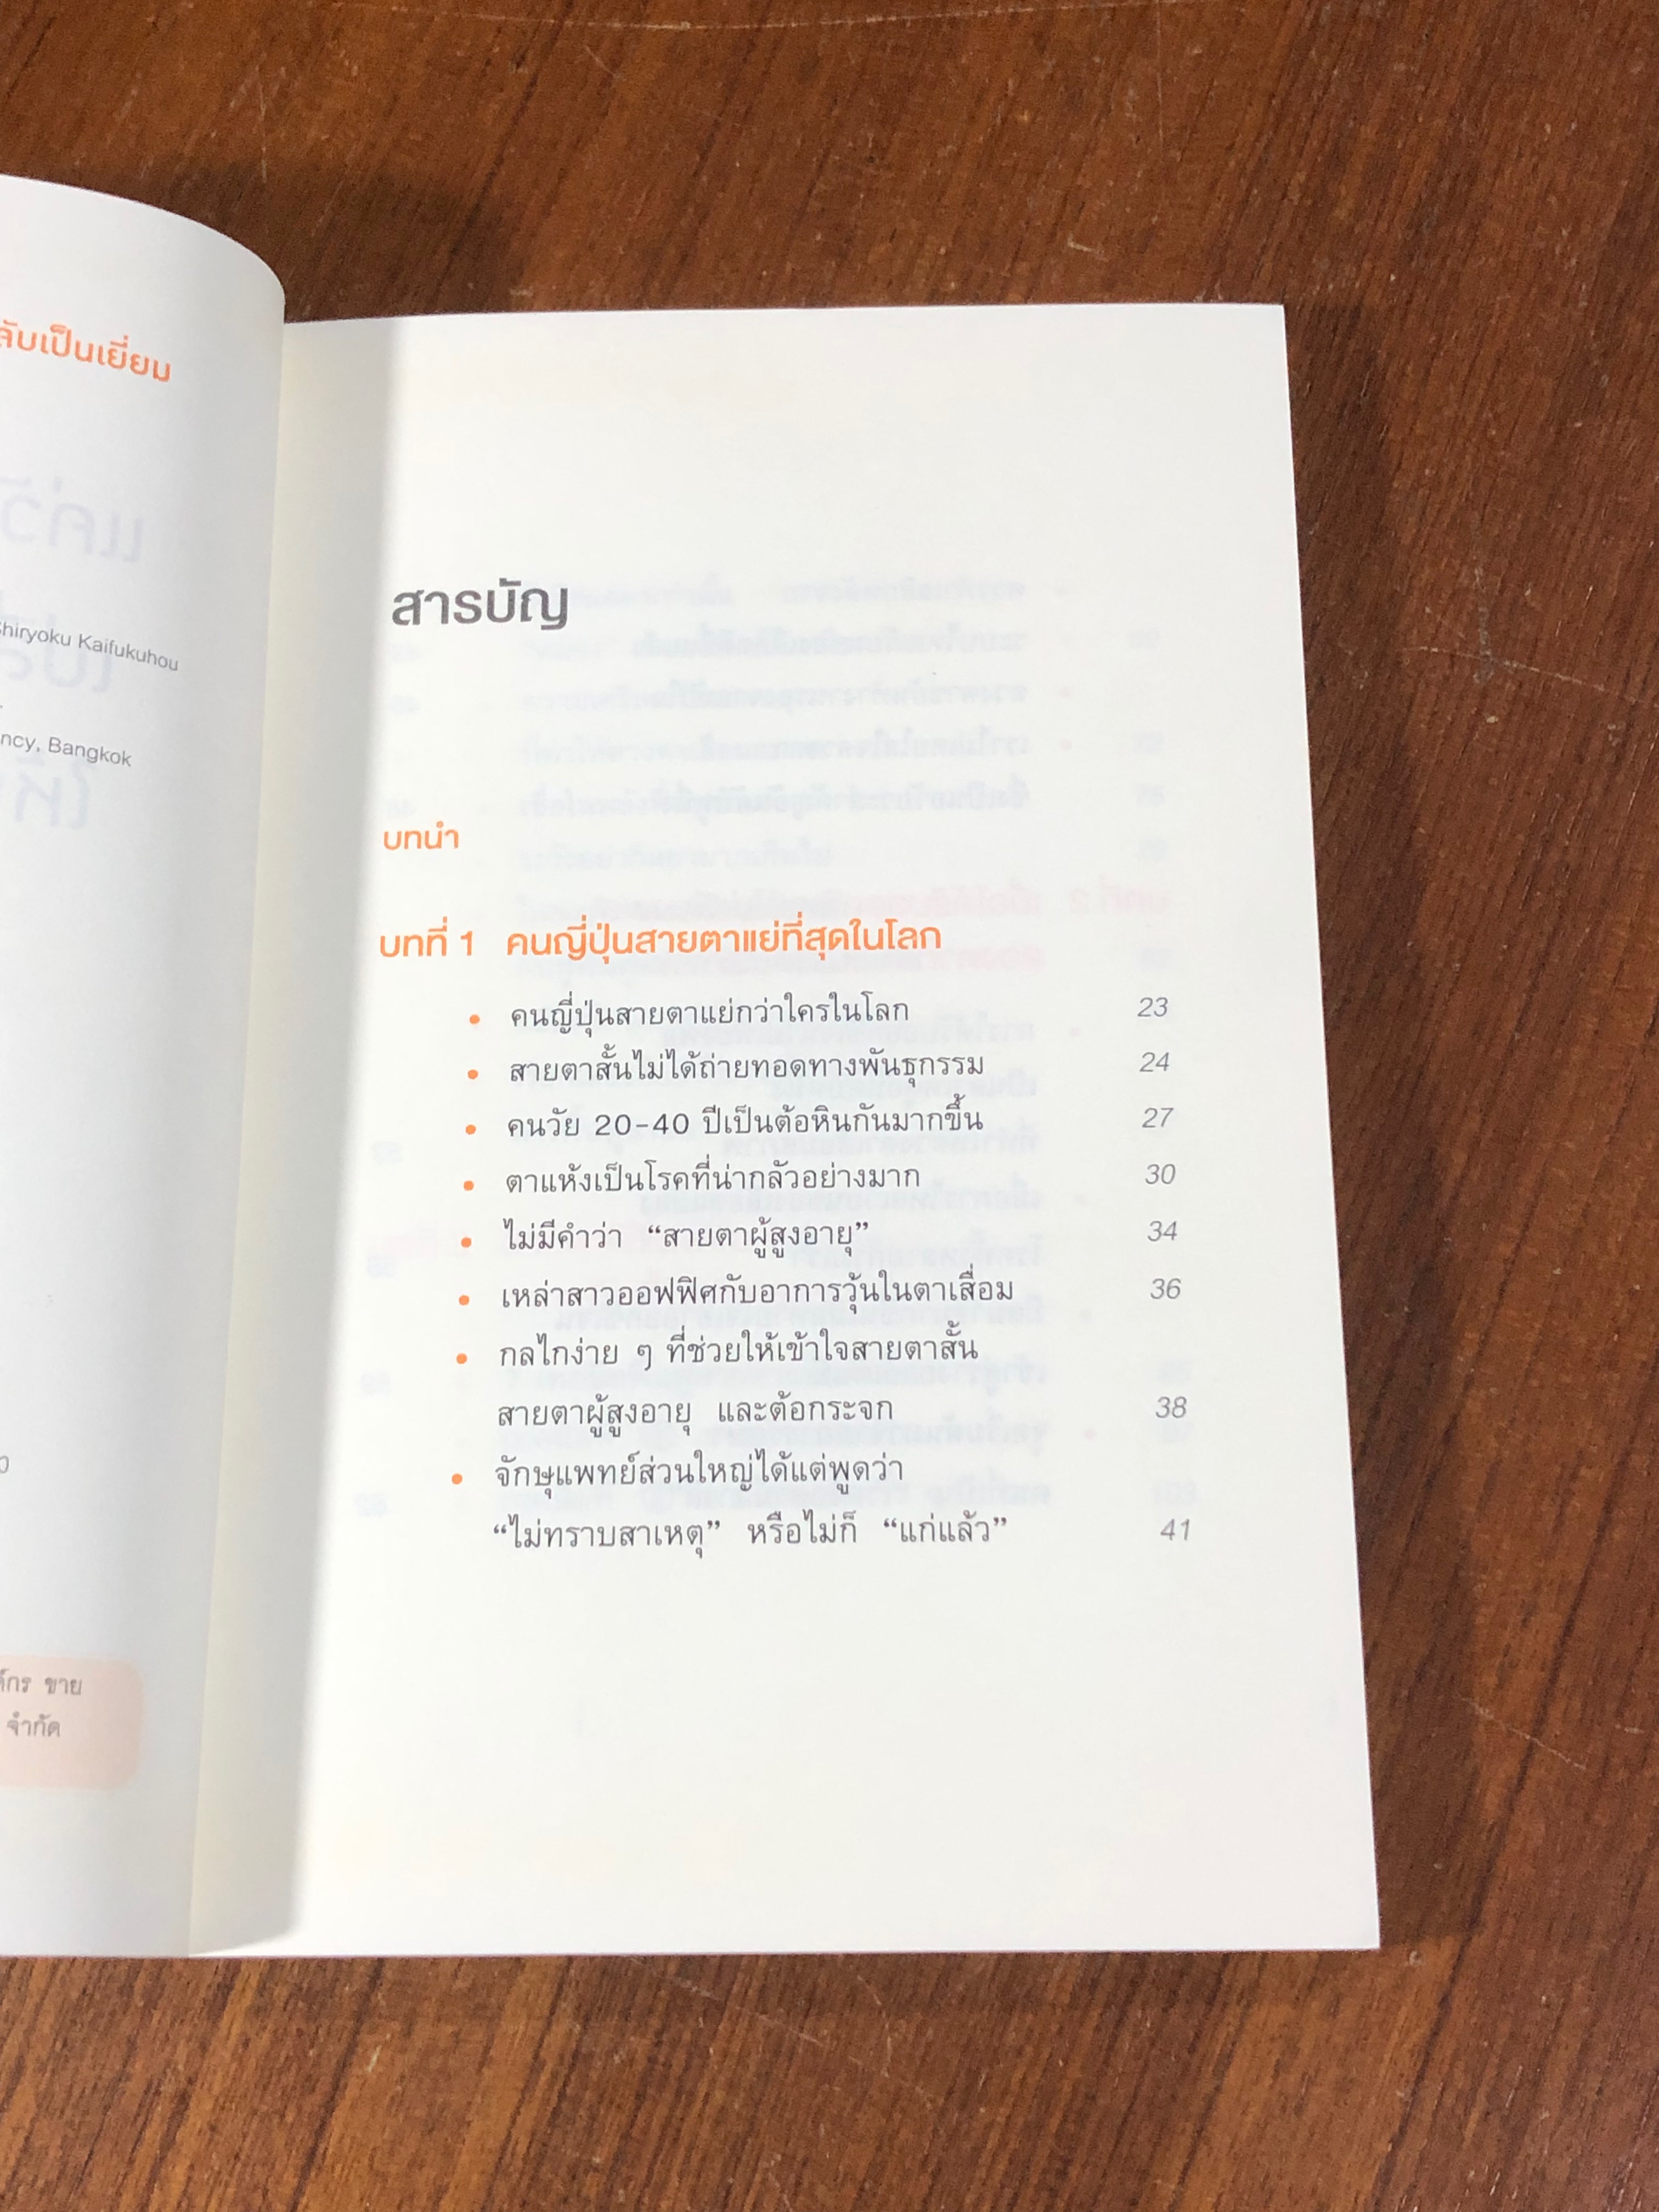 ลับเป็นเยี่ยม
Shiryoku Kaifukuhou
ncy, Bangkok
ขาย
จำกัด
สารบัญ
บทนำ
บทที่ 1 คนญี่ปุ่นสายตาแย่ที่สุดในโลก
• คนญี่ปุ่นสายตาแย่กว่าใครในโลก 23
• สายตาสั้นไม่ได้ถ่ายทอดทางพันธุกรรม 24
• คนวัย 20-40 ปีเป็นต้อหินกันมากขึ้น 27
• ตาแห้งเป็นโรคที่น่ากลัวอย่างมาก 30
• ไม่มีคำว่า “สายตาผู้สูงอายุ” 34
• เหล่าสาวออฟฟิศกับอาการวุ้นในตาเสื่อม 36
• กลไกง่าย ๆ ที่ช่วยให้เข้าใจสายตาสั้น
สายตาผู้สูงอายุ และต้อกระจก 38
• จักษุแพทย์ส่วนใหญ่ได้แต่พูดว่า
“ไม่ทราบสาเหตุ” หรือไม่ก็ “แก่แล้ว” 41